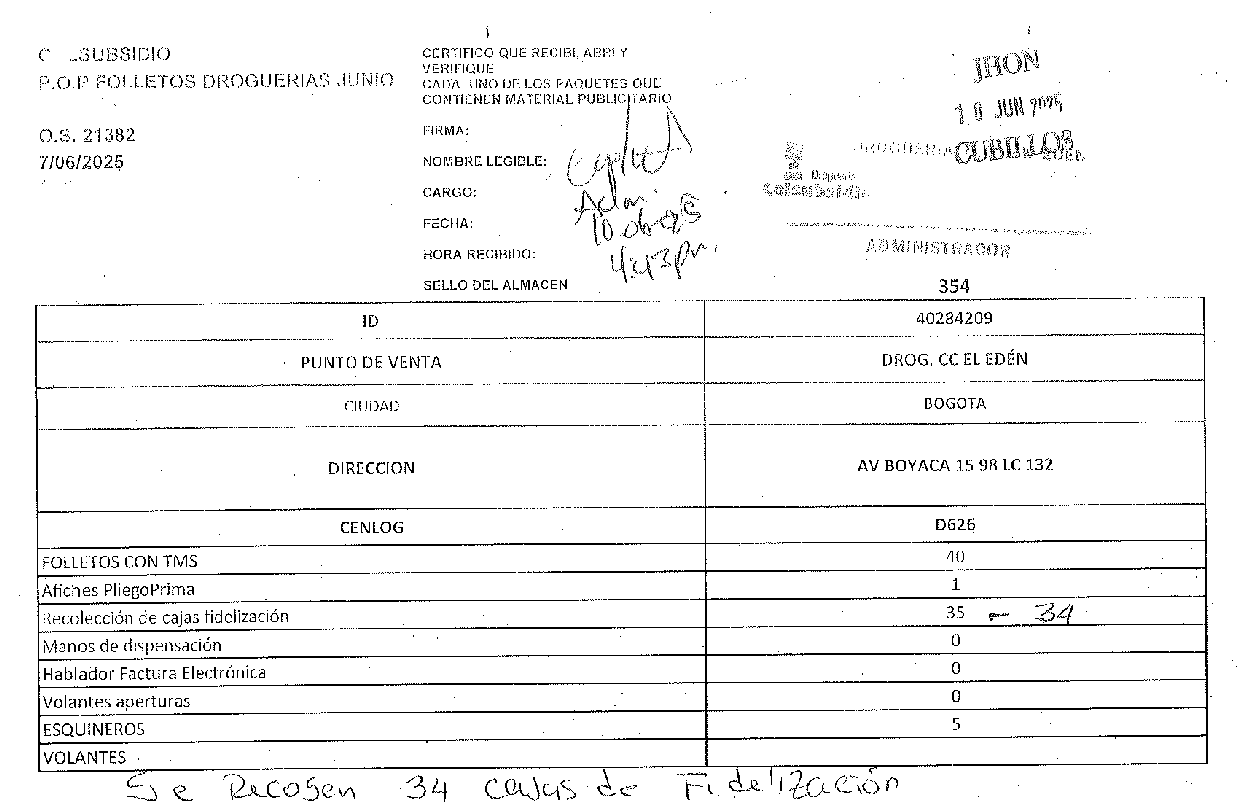 SUBSIDIO
P.O.P FOLLETOS DROGUERIAS JUNIO
O.S. 21382
7/06/2025
CERTIFICO QUE RECIBI, ABRI Y
VERIFIQUE
CADA UNO DE LOS PAQUETES QUE
CONTIENEN MATERIAL PUBLICITARIO
FIRMA:
NOMBRE LEGIBLE:
CARGO: Adm.
FECHA: 10
HORA RECIBIDO: 4:43pm.
SELLO DEL ALMACEN
JHON
10 JUN 2025
DROGUERIA
CUBILLOS
Colsubsidio
ADMINISTRADOR
354
ID 40284209
PUNTO DE VENTA DROG. CC EL EDÉN
CIUDAD BOGOTA
DIRECCION AV BOYACA 15 98 LC 132
CENLOG D626
FOLLETOS CON TMS 40
Afiches PliegoPrima 1
Recolección de cajas fidelización 35 - 34
Manos de dispensación 0
Hablador Factura Electrónica 0
Volantes aperturas 0
ESQUINEROS 5
VOLANTES
Se Recogen 34 cajas de Fidelización